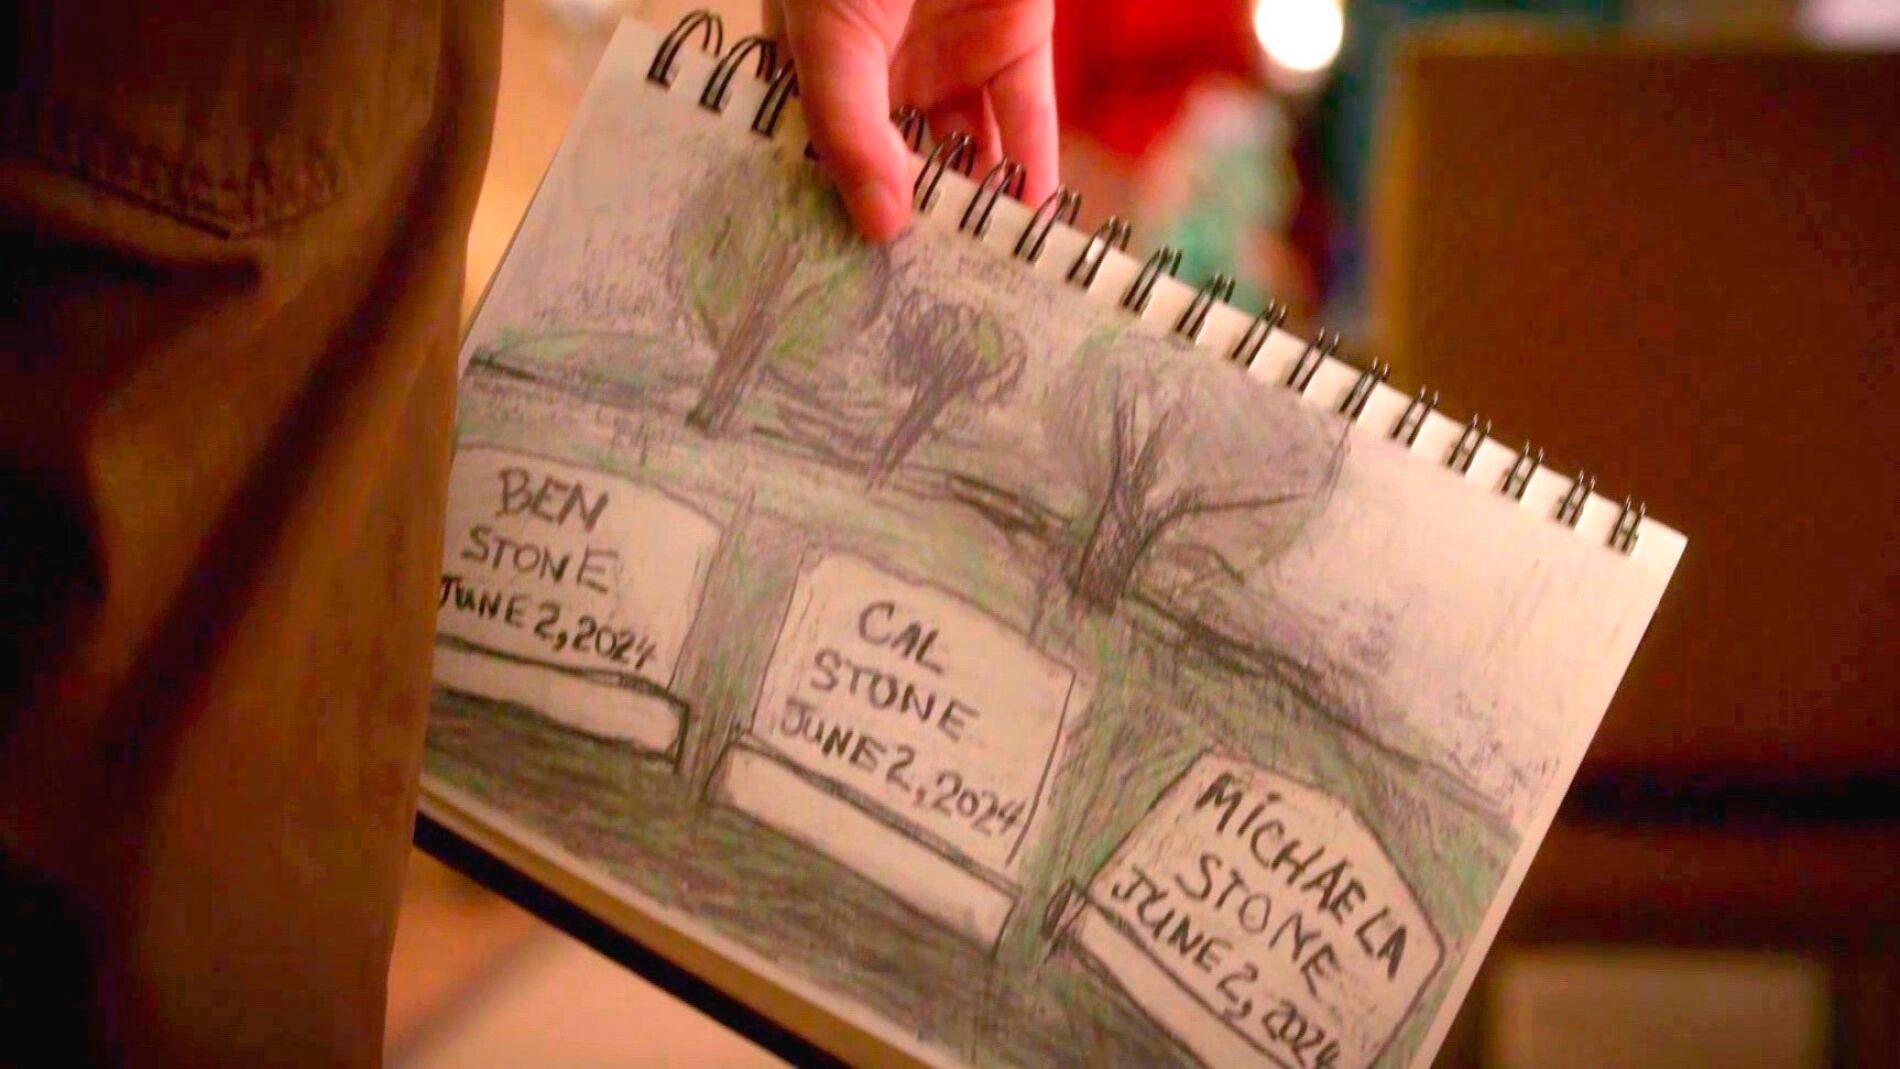 BEN
STONE
JUNE 2, 2024
CAL
STONE
JUNE 2, 2024
MiCHAELA
STONE
JUNE 2, 2024